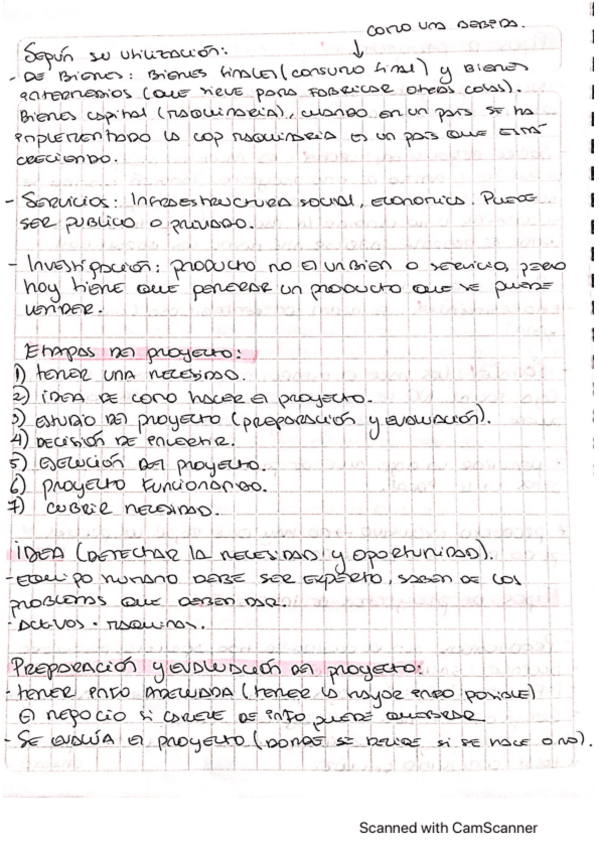 como una bebida.
Según su utilización:
- De bienes: Bienes finales (consumo final) y Bienes
intermedios (que sieve para fabricar otras cosas).
Bienes capital (maquinaria), cuando en un país se ha
implementado la cap maquinaria es un país que está
creciendo.
- Servicios: Infraestructura social, economica. Puede
ser publico o privado.
- Investigación: producto no es un bien o servicio, pero
hoy tiene que generar un producto que se puede
vender.
Etapas del proyecto:
1) tener una necesidad.
2) idea de como hacer el proyecto.
3) estudio del proyecto (preparación y evaluación).
4) Decisión de invertir.
5) ejecución del proyecto.
6) proyecto funcionando.
7) cubrir necesidad.
idea (detectar la necesidad y oportunidad).
- equipo humano debe ser experto, saben de los
problemas que deben dar.
- activos · maquinas.
Preparación y evaluación del proyecto:
- tener info adecuada (tener la mayor info posible)
El negocio si carece de info puede quebrar
- Se evalúa el proyecto (donde se decide si se hace o no).
Scanned with CamScanner